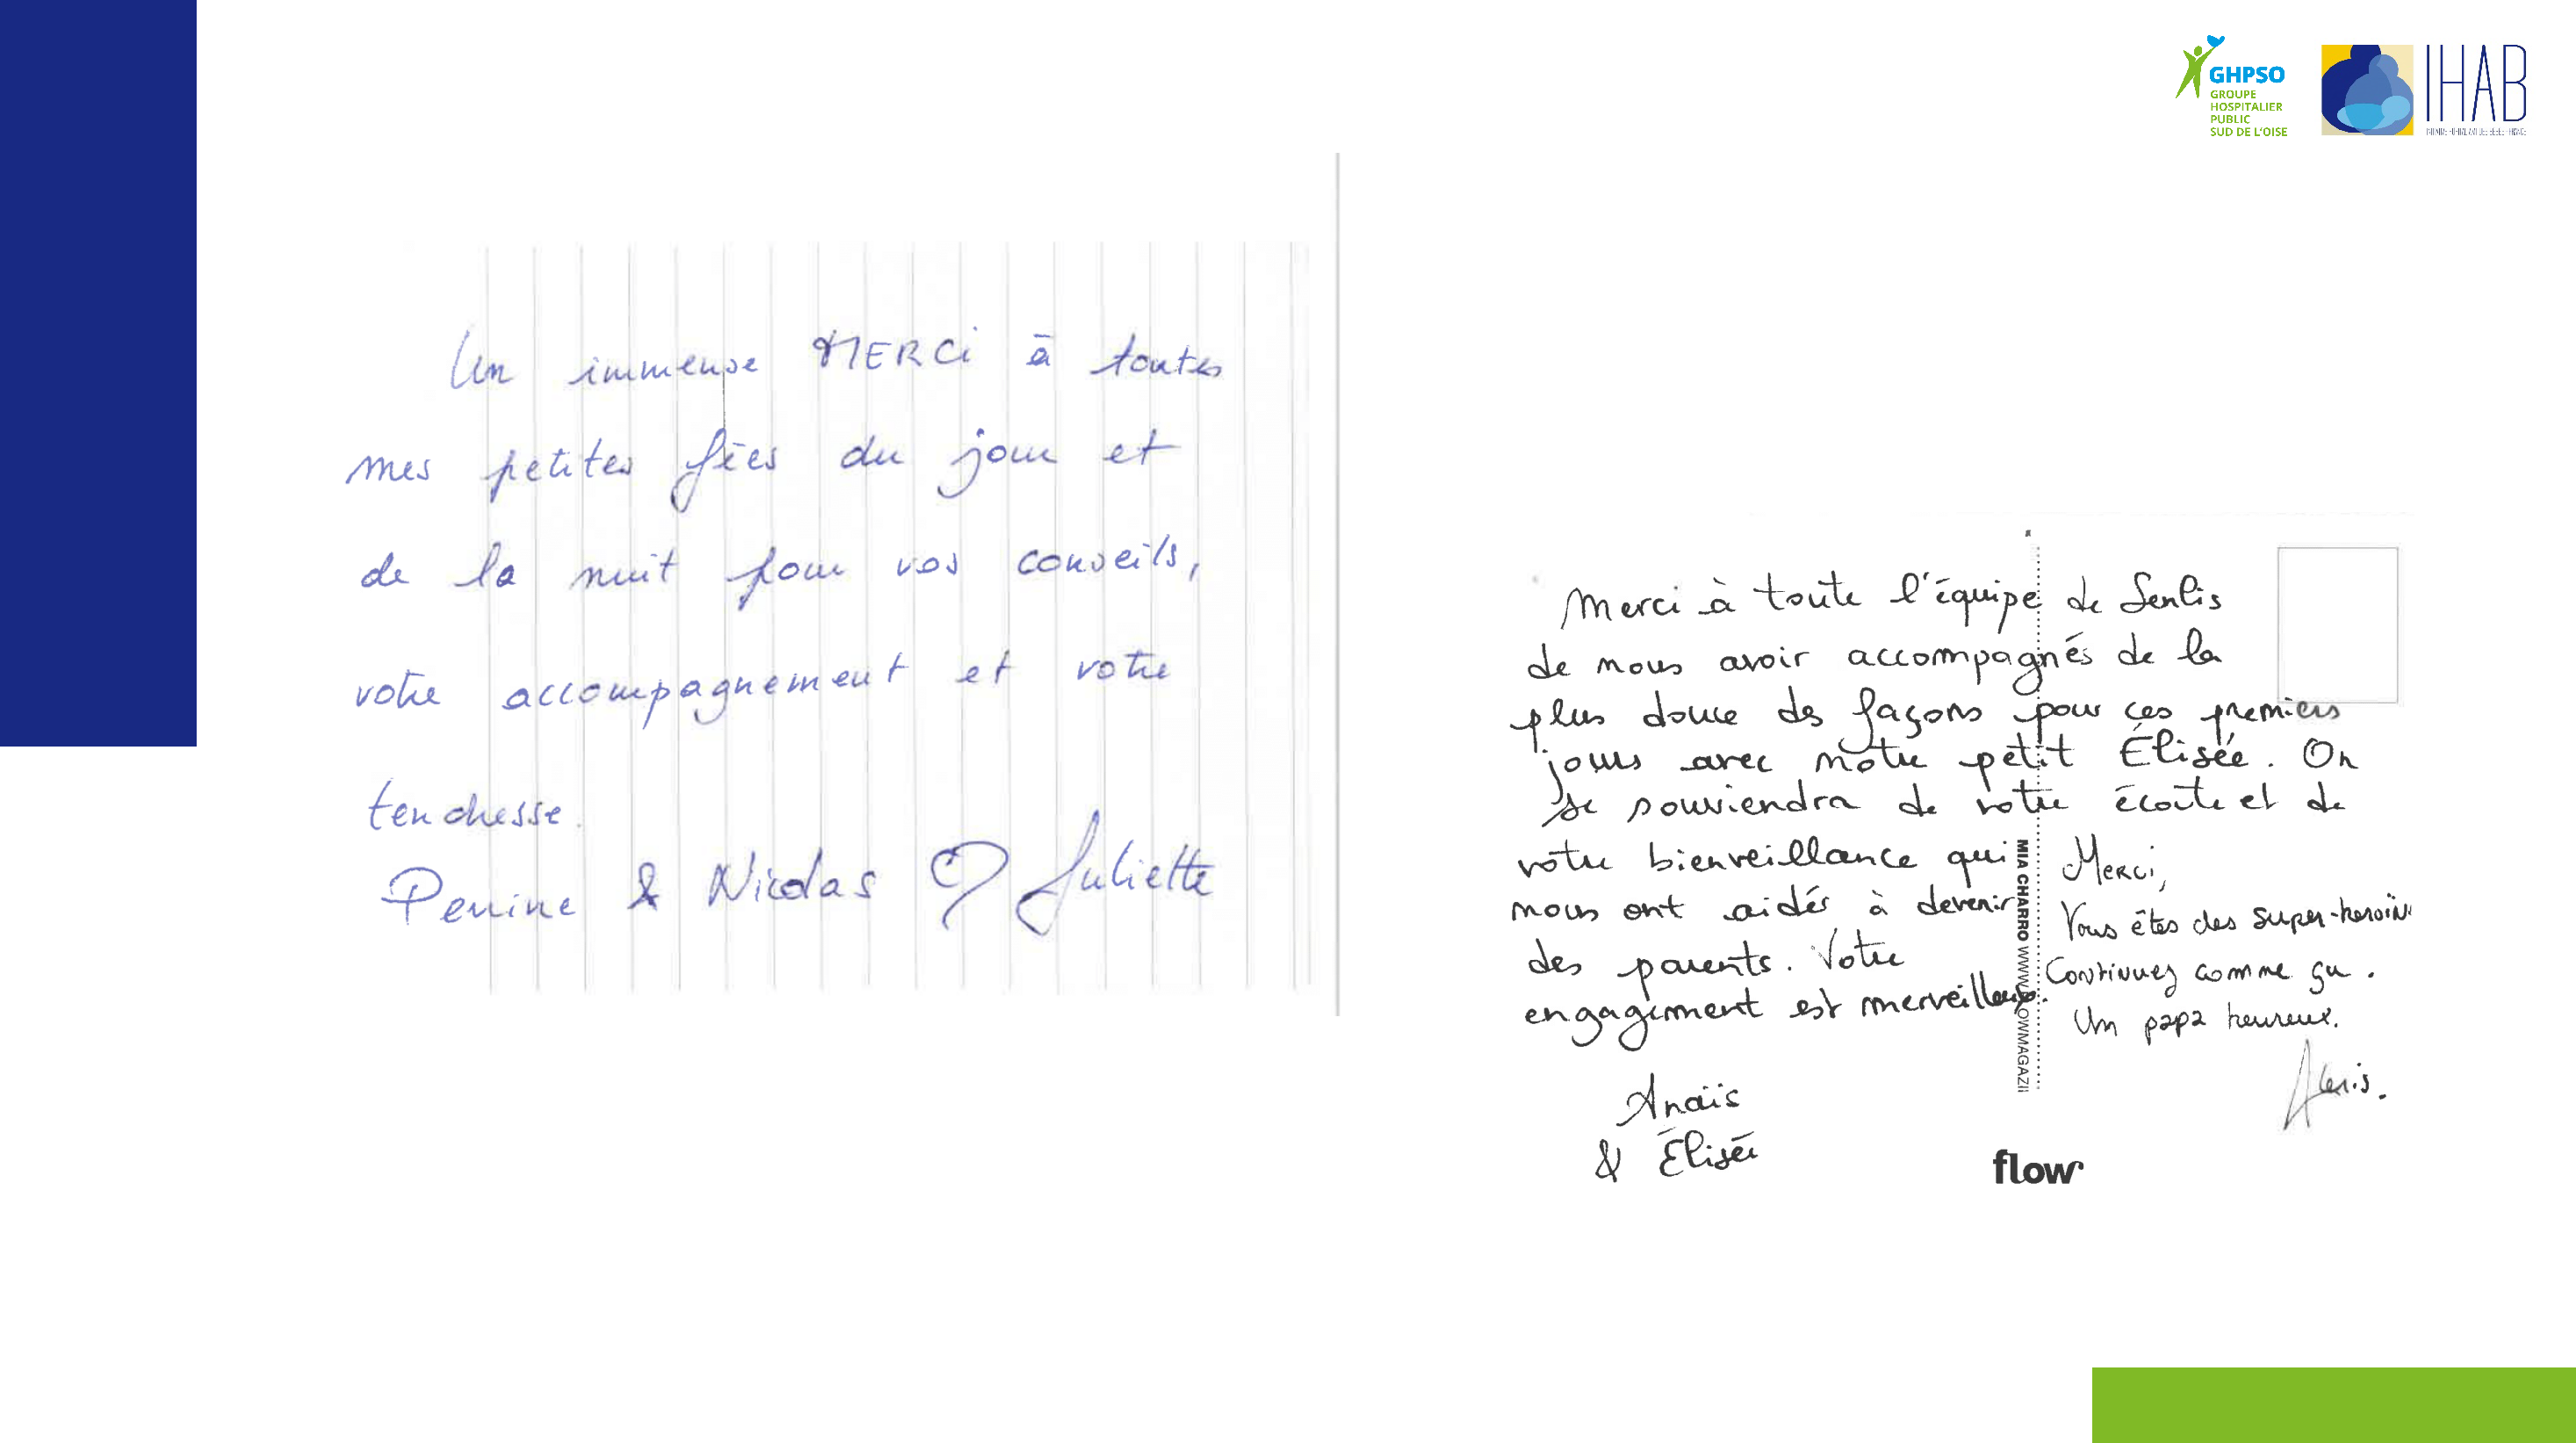 GHPSO
GROUPE
HOSPITALIER
PUBLIC
SUD DE L'OISE
IHAB
Un immense MERCi à toutes
mes petites fées du jour et
de la nuit pour vos conseils,
votre accompagnement et votre
tendresse.
Perrine & Nicolas Juliette
Merci à toute l'équipe de Senlis
de nous avoir accompagnés de la
plus douce des façons pour ces premiers
jours avec notre petit Élisée. On
se souviendra de votre écoute et de
votre bienveillance qui
nous ont aidés à devenir
des parents. Votre
engagement est merveilleux.
Anaïs
& Élisée
MIA CHARRO
Merci,
Vous êtes des super-heroïn
Continuez comme ça.
Un papa heureux.
Alexis.
flow